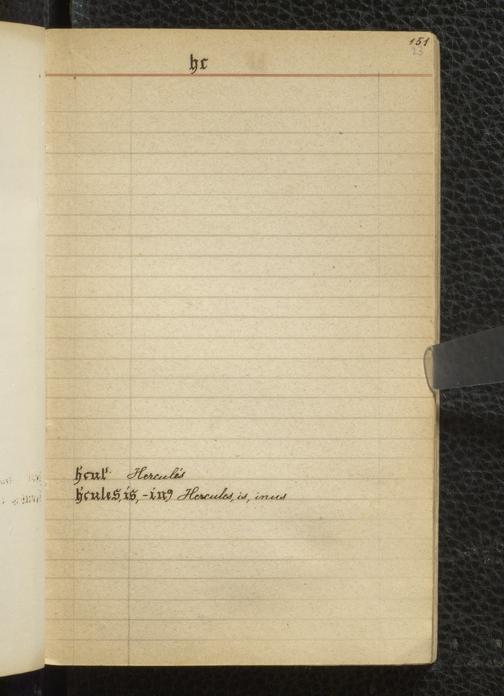 151
23
hc
hcul Hercules
hcules, is, -inꝰ Hercules, is, inus